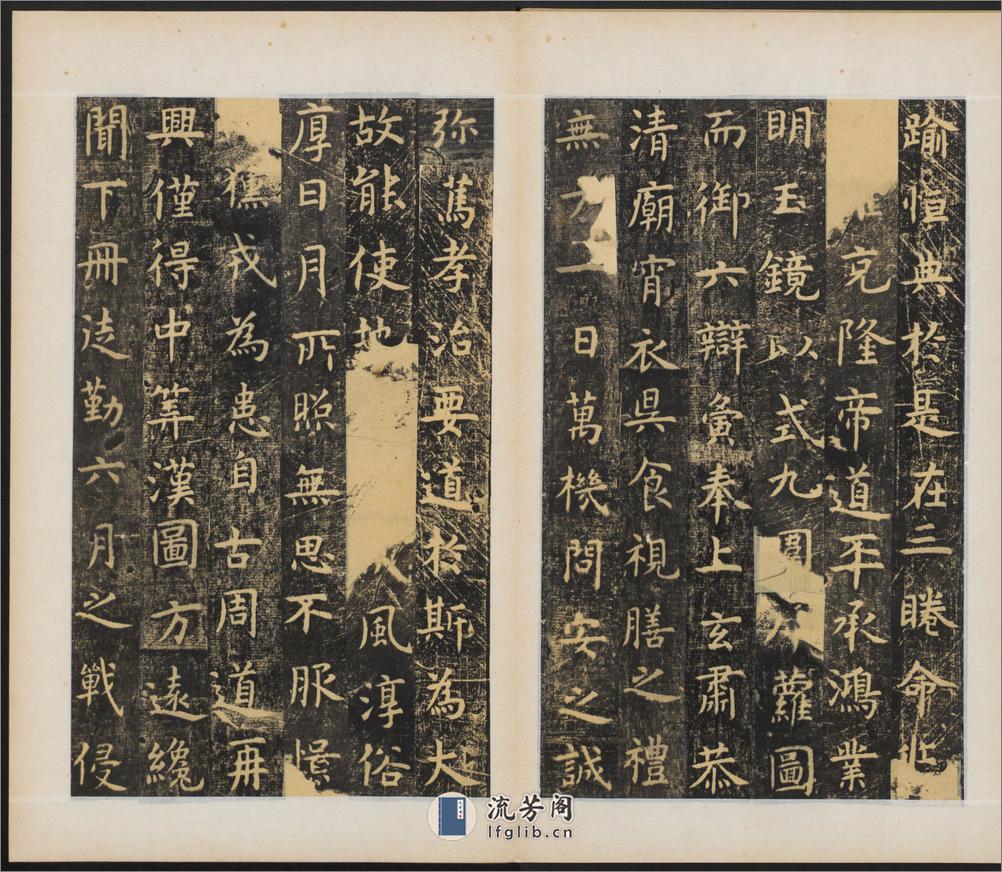 踰恒典於是在三眷命
克隆帝道丕承鴻業
明玉鏡以式九圍蘿圖
而御六辯彝奉上玄肅恭
清廟宵衣昃食視膳之禮
無方一日萬機問安之誠
弥篤孝治要道於斯為大
故能使地風淳俗
厚日月所照無思不服憬
獯戎為患自古周道再
興僅得中筭漢圖方遠纔
聞下冊徒勤六月之戰侵
流芳阁
lfglib.cn